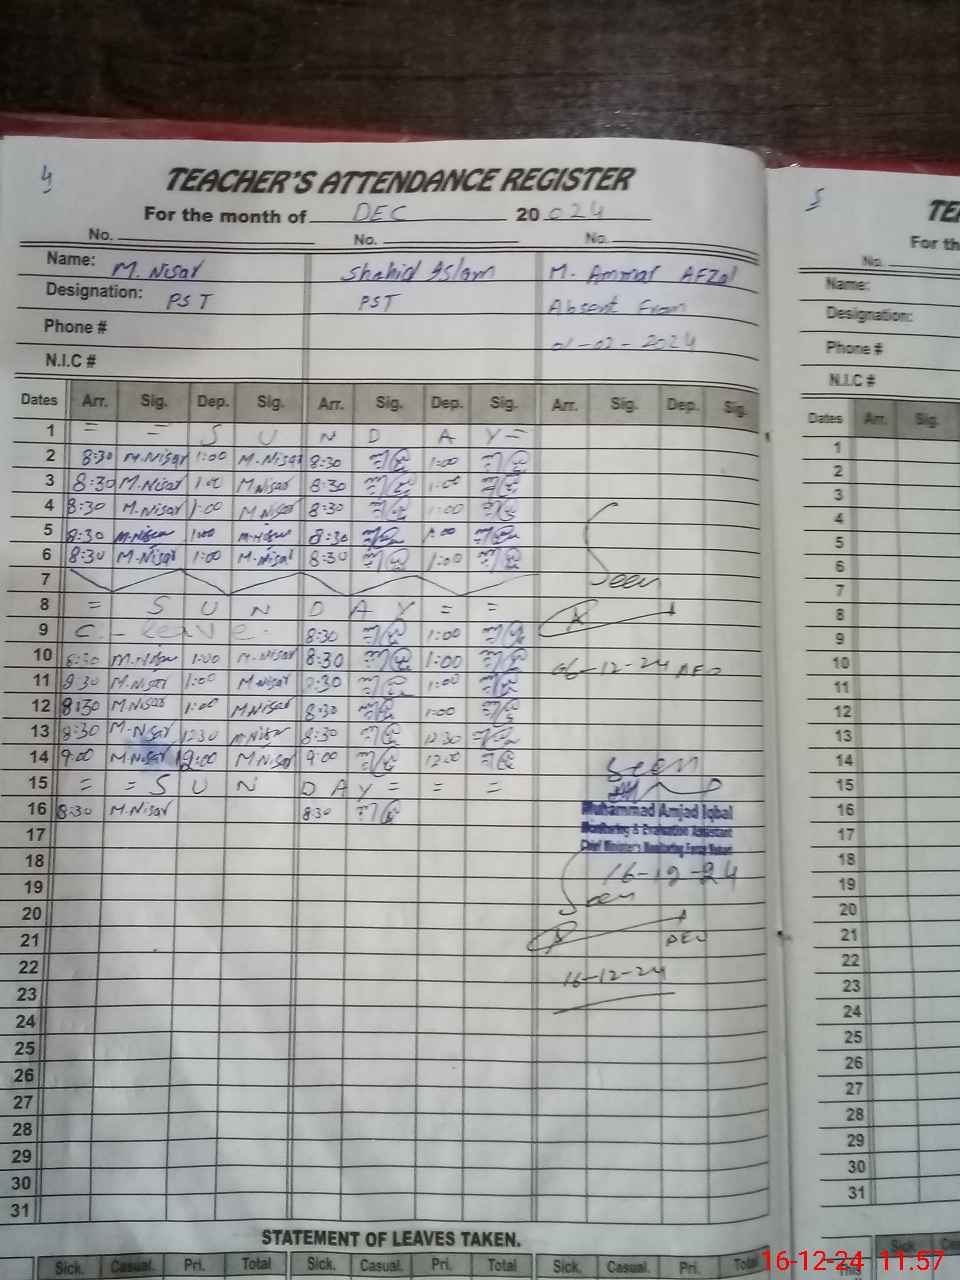 4
TEACHER'S ATTENDANCE REGISTER
For the month of DEC 20 024
No. No. No.
Name: M. Nisar Shahid Aslam M. Ammar AFZal
Designation: PST PST Absent From
Phone # 01-02-2024
N.I.C #
Dates Arr. Sig. Dep. Sig. Arr. Sig. Dep. Sig. Arr. Sig. Dep. Sig.
1 = = S U N D A Y =
2 8:30 M.Nisar 1:00 M.Nisar 8:30 1:00
3 8:30 M.Nisar 1:00 M.Nisar 8:30 1:00
4 8:30 M.Nisar 1:00 M.Nisar 8:30 1:00
5 8:30 M.Nisar 1:00 M.Nisar 8:30 1:00
6 8:30 M.Nisar 1:00 M.Nisar 8:30 1:00
7 Seen
8 = S U N D A Y = =
9 C.- leave. 8:30 1:00
10 8:30 M.Nisar 1:00 M.Nisar 8:30 1:00 06-12-24
11 8:30 M.Nisar 1:00 M.Nisar 8:30 1:00
12 8:30 M.Nisar 1:00 M.Nisar 8:30 1:00
13 8:30 M.Nisar 12:30 M.Nisar 8:30 12:30
14 9:00 M.Nisar 12:00 M.Nisar 9:00 12:00 Seen
15 = = S U N D A Y = = =
16 8:30 M.Nisar 8:30 Muhammad Amjad Iqbal
17 Monitoring & Evaluation Assistant
Chief Minister's Monitoring Force
18 16-12-24
19 Seen
20
21
22 16-12-24
23
24
25
26
27
28
29
30
31
STATEMENT OF LEAVES TAKEN.
Sick. Casual. Pri. Total Sick. Casual. Pri. Total Sick. Casual. Pri. Total
5
TE
For th
No.
Name:
Designation:
Phone #
N.I.C #
Dates Arr. Sig.
1
2
3
4
5
6
7
8
9
10
11
12
13
14
15
16
17
18
19
20
21
22
23
24
25
26
27
28
29
30
31
Sick. Ca
This
16-12-24 11:57